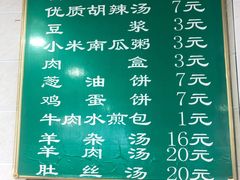 优质胡辣汤 7元
豆浆 3元
小米南瓜粥 3元
肉盒 3元
葱油饼 7元
鸡蛋饼 7元
牛肉水煎包 1元
羊杂汤 16元
羊肉汤 20元
肚丝汤 20元